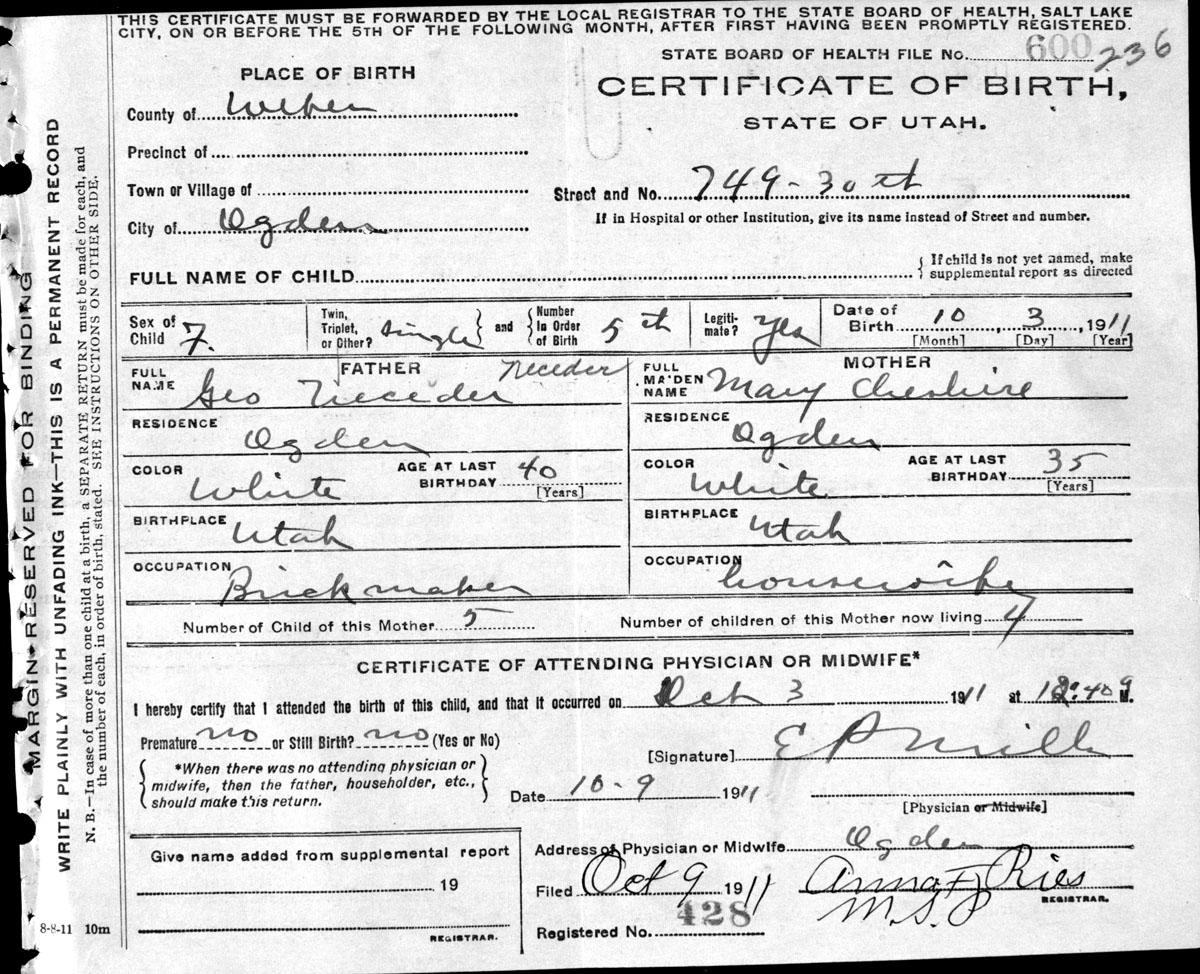 THIS CERTIFICATE MUST BE FORWARDED BY THE LOCAL REGISTRAR TO THE STATE BOARD OF HEALTH, SALT LAKE
CITY, ON OR BEFORE THE 5TH OF THE FOLLOWING MONTH, AFTER FIRST HAVING BEEN PROMPTLY REGISTERED.
STATE BOARD OF HEALTH FILE No. 600 236
PLACE OF BIRTH
CERTIFICATE OF BIRTH,
STATE OF UTAH.
County of Weber
Precinct of
Town or Village of
Street and No. 749-30th
If in Hospital or other Institution, give its name instead of Street and number.
City of Ogden
FULL NAME OF CHILD
{ If child is not yet named, make
supplemental report as directed
Sex of Child F.
Twin, Triplet, or Other? single } and { Number In Order of Birth 5th
Legiti-mate? Yes
Date of Birth 10, 3, 1911
[Month] [Day] [Year]
FATHER
FULL NAME Geo Neceder Neceder
MOTHER
FULL MAIDEN NAME Mary Cheshire
RESIDENCE Ogden
RESIDENCE Ogden
COLOR White AGE AT LAST BIRTHDAY 40 [Years]
COLOR White AGE AT LAST BIRTHDAY 35 [Years]
BIRTHPLACE Utah
BIRTHPLACE Utah
OCCUPATION Brickmaker
OCCUPATION housewife
Number of Child of this Mother 5 Number of children of this Mother now living 4
CERTIFICATE OF ATTENDING PHYSICIAN OR MIDWIFE*
I hereby certify that I attended the birth of this child, and that it occurred on Oct 3 1911 at M.
Premature no or Still Birth? no (Yes or No)
[Signature] E P Mills
{ *When there was no attending physician or
midwife, then the father, householder, etc.,
should make this return. }
Date 10-9 1911
[Physician or Midwife]
Give name added from supplemental report
19
REGISTRAR.
Address of Physician or Midwife Ogden
Filed Oct 9 1911 Anna F Ries
REGISTRAR.
Registered No. 428
8-8-11 10m
MARGIN RESERVED FOR BINDING
WRITE PLAINLY WITH UNFADING INK—THIS IS A PERMANENT RECORD
N. B.—In case of more than one child at a birth, a SEPARATE RETURN must be made for each, and
the number of each, in order of birth, stated. SEE INSTRUCTIONS ON OTHER SIDE.